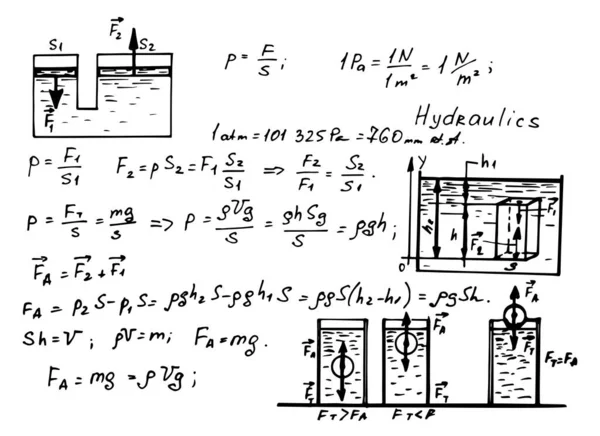 S1 F⃗2 S2
F⃗1
P = F/S ; 1Pa = 1N/1m² = 1 N/m² ;
Hydraulics
1atm = 101 325Pa = 760mm
P = F1/S1 F2 = pS2 = F1 S2/S1 ⇒ F2/F1 = S2/S1 .
P = FT/S = mg/S ⇒ P = ρVg/S = ρhSg/S = ρgh ;
Y h1
h2 h F⃗1
F⃗2
0 S
F⃗A = F⃗2 + F⃗1
FA = p2 S - p1 S = ρgh2 S - ρgh1 S = ρgS(h2-h1) = ρgSh.
Sh = V ; ρV = m ; FA = mg.
FA = mg = ρVg ;
F⃗A F⃗A F⃗A
F⃗T F⃗T F⃗T FT=FA
FT>FA FT<F